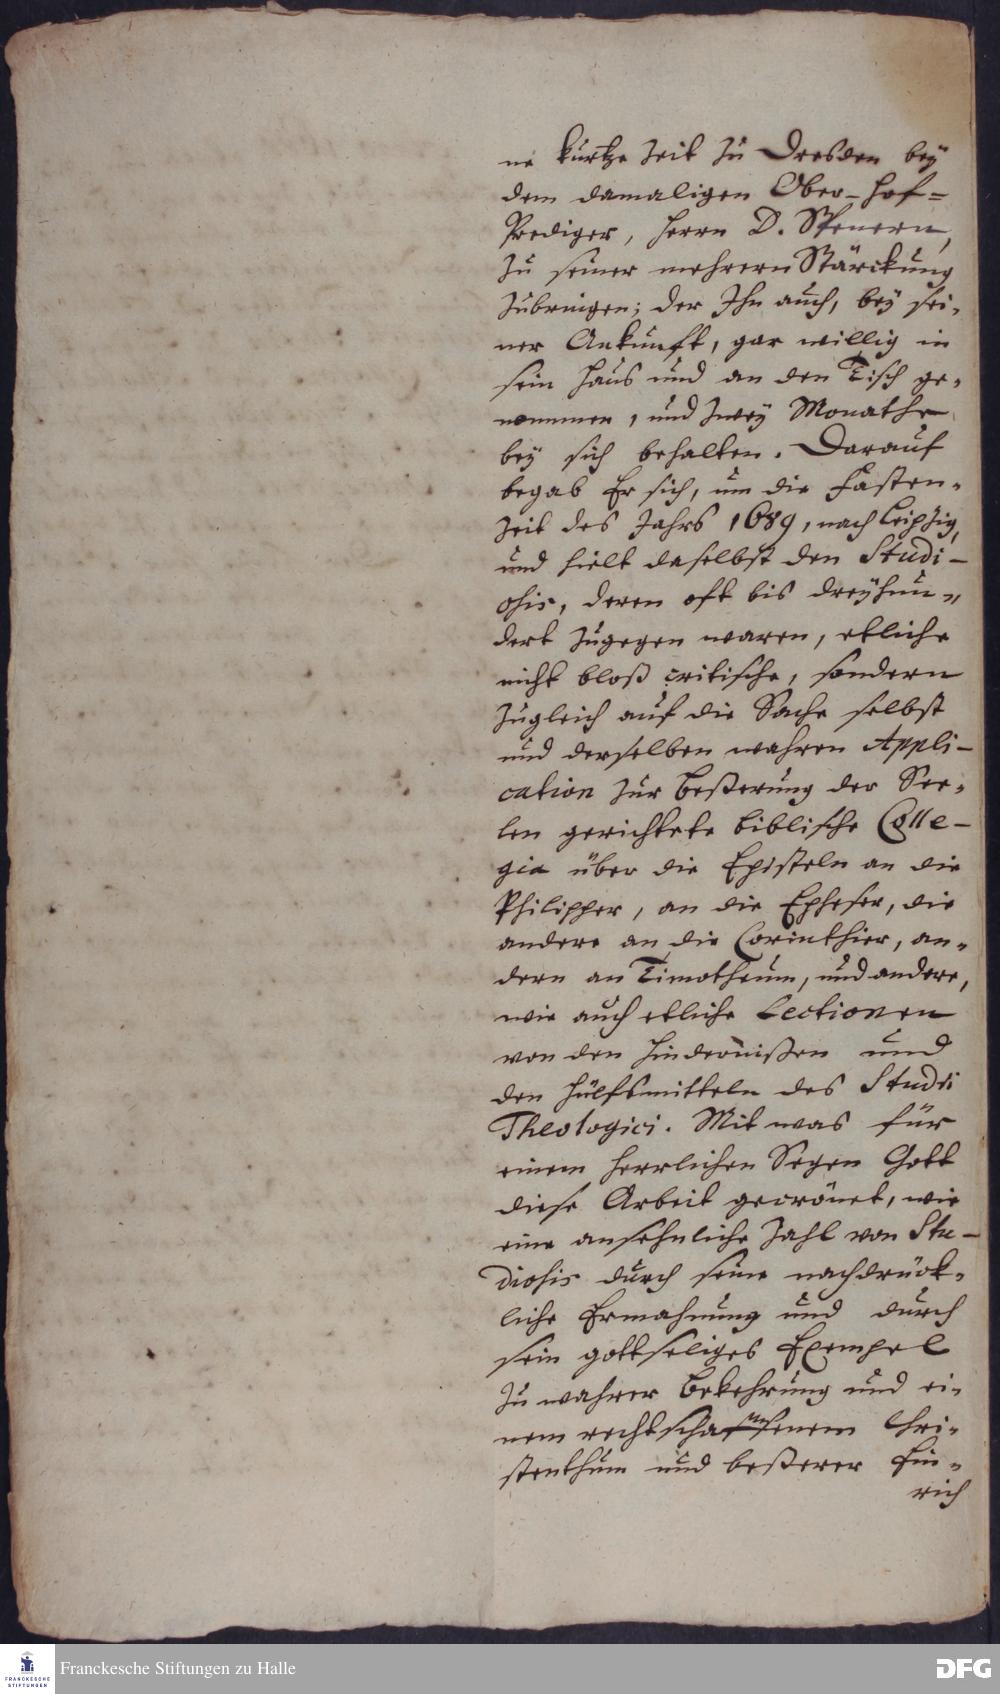 ne kurtze Zeit zu Dresden bey
dem damaligen Ober-Hof=
Prediger, Herrn D. Spenern,
zu seiner mehrern Stärckung
zubringen; der Ihn auch, bey sei-
ner Ankunfft, gar willig in
sein Haus und an den Tisch ge-
nommen, und zwey Monathe
bey sich behalten. Darauf
begab Er sich, um die Fasten-
Zeit des Jahrs 1689, nach Leipzig,
und hielt daselbst den Studi-
osis, deren oft bis dreyhun-
dert zugegen waren, etliche
nicht bloß critische, sondern
zugleich auf die Sache selbst
und derselben wahren Appli-
cation zur Beßerung der See-
len gerichtete biblische Colle-
gia über die Episteln an die
Philipper, an die Epheser, die
andere an die Corinthier, an-
dern an Timotheum, und andere,
wie auch etliche Lectionen
von den Hindernißen und
den Hülfsmitteln des Studii
Theologici. Mit was für
einem herrlichen Segen Gott
diese Arbeit gecrönet, wie
eine ansehnliche Zahl von Stu-
diosis durch seine nachdrück-
liche Ermahnung und durch
sein gottseliges Exempel
zu wahrer Bekehrung und ei-
nem rechtschaffenem Chri-
stenthum und beßerer Ein-
rich
Franckesche Stiftungen zu Halle
FRANCKESCHE
STIFTUNGEN
DFG